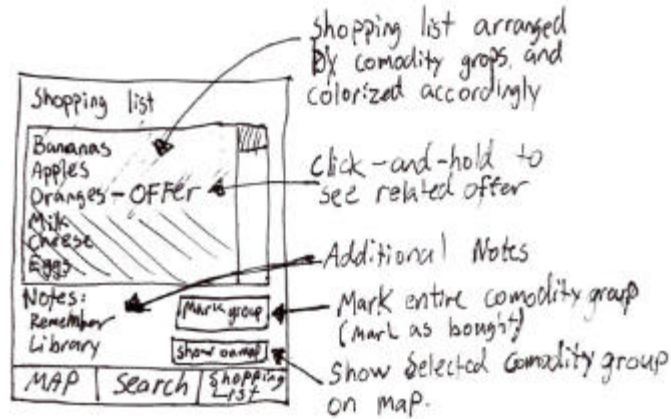 Shopping list
Bananas
Apples
Oranges - OFFer
Milk
Cheese
Eggs
Notes:
Remember
Library
Mark group
Show on map
MAP
Search
Shopping
List
Shopping list arranged
By comodity grops, and
colorized accordingly
Click-and-hold to
see related offer
Additional Notes
Mark entire comodity group
(mark as bought)
Show Selected Comodity group
on map.